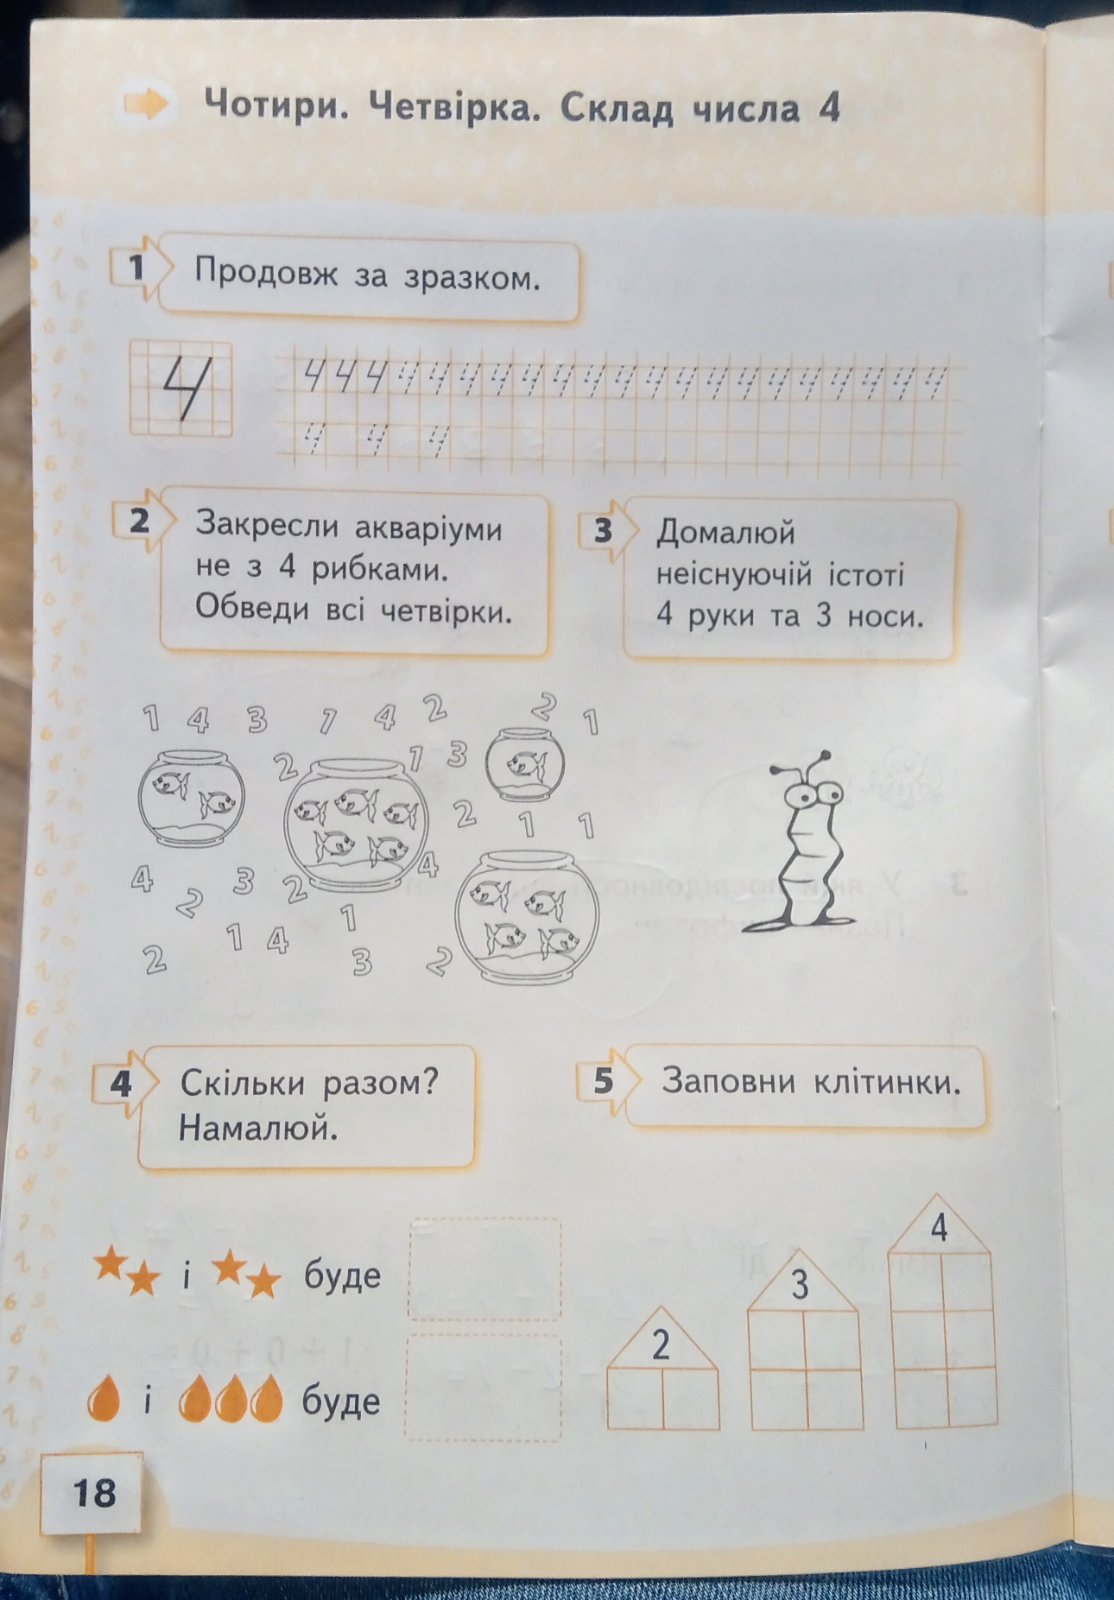 Чотири. Четвірка. Склад числа 4
1 Продовж за зразком.
4 4 4 4 4 4 4 4 4 4 4 4 4 4 4 4 4 4 4 4 4 4
4 4 4
2 Закресли акваріуми
не з 4 рибками.
Обведи всі четвірки.
3 Домалюй
неіснуючій істоті
4 руки та 3 носи.
1 4 3 1 4 2 2 1
2 1 3
2 1 1
4 2 3 2 4
1
1 4
2 3 2
4 Скільки разом?
Намалюй.
5 Заповни клітинки.
і буде
і буде
2 3 4
18